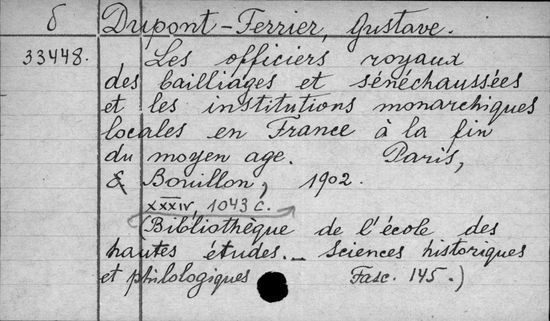 б Dupont-Ferrier, Gustave.
33448. Les officiers royaux
des bailliages et sénéchaussées
et les institutions monarchiques
locales en France à la fin
du moyen age. Paris,
É. Bouillon, 1902.
XXXIV, 1043 c.
(Bibliothèque de l'école des
hautes études. — Sciences historiques
et philologiques Fasc. 145.)